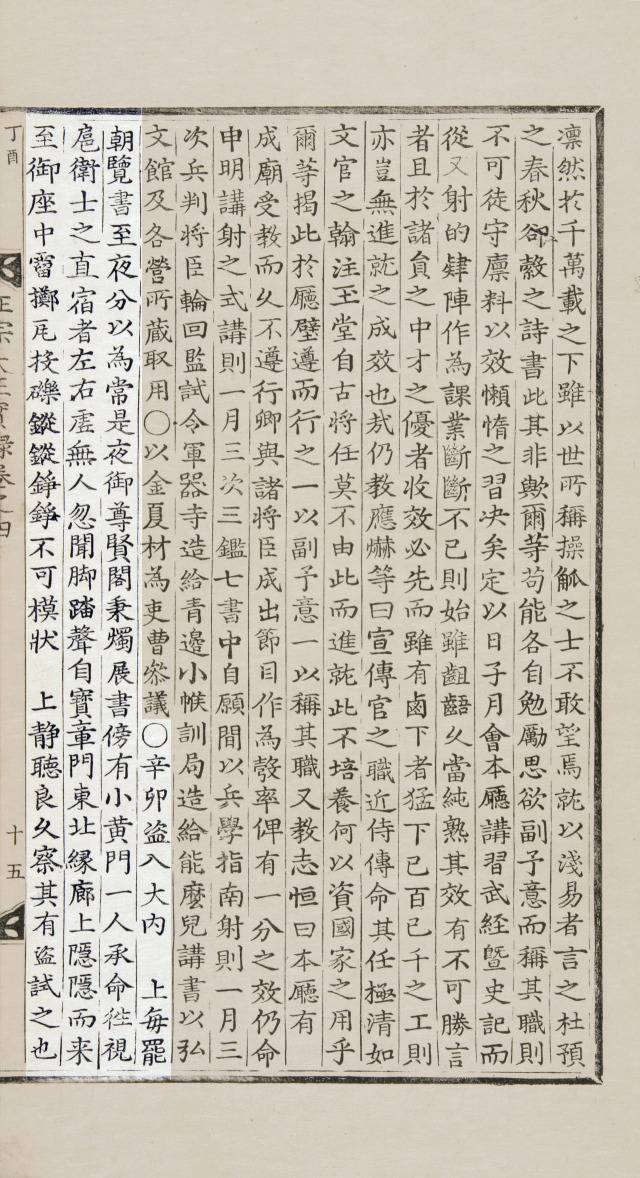 凛然於千萬載之下雖以世所稱操觚之士不敢望焉就以淺易者言之杜預
之春秋卻縠之詩書此其非歟爾等苟能各自勉勵思欲副予意而稱其職則
不可徒守廩料以效懶惰之習决矣定以日子月會本廳講習武經暨史記而
從又射的肄陣作為課業斷斷不已則始雖齟齬久當純熟其效有不可勝言
者且於諸員之中才之優者收效必先而雖有鹵下者猛下已百已千之工則
亦豈無進就之成效也㢤仍教應爀等曰宣傳官之職近侍傳命其任極清如
文官之翰注玉堂自古將任莫不由此而進就此不培養何以資國家之用乎
爾等揭此於廳壁遵而行之一以副予意一以稱其職又教志恒曰本廳有
成廟受教而久不遵行卿與諸將臣成出節目作為彀率俾有一分之效仍命
申明講射之式講則一月三次三鑑七書中自願間以兵學指南射則一月三
次兵判將臣輪回監試令軍器寺造給青邊小帿訓局造給能麽兒講書以弘
文館及各營所蔵取用○以金夏材為吏曹叅議○辛卯盗入大内　上毎罷
朝覽書至夜分以為常是夜御尊賢閣秉燭展書傍有小黄門一人承命徃視
扈衛士之直宿者左右虛無人忽聞脚踏聲自寶章門東北緣廊上隱隱而来
至御座中霤擲瓦投礫鏦鏦錚錚不可模狀　上静聽良久察其有盗試之也
丁酉
正宗大王實錄卷之四
十五